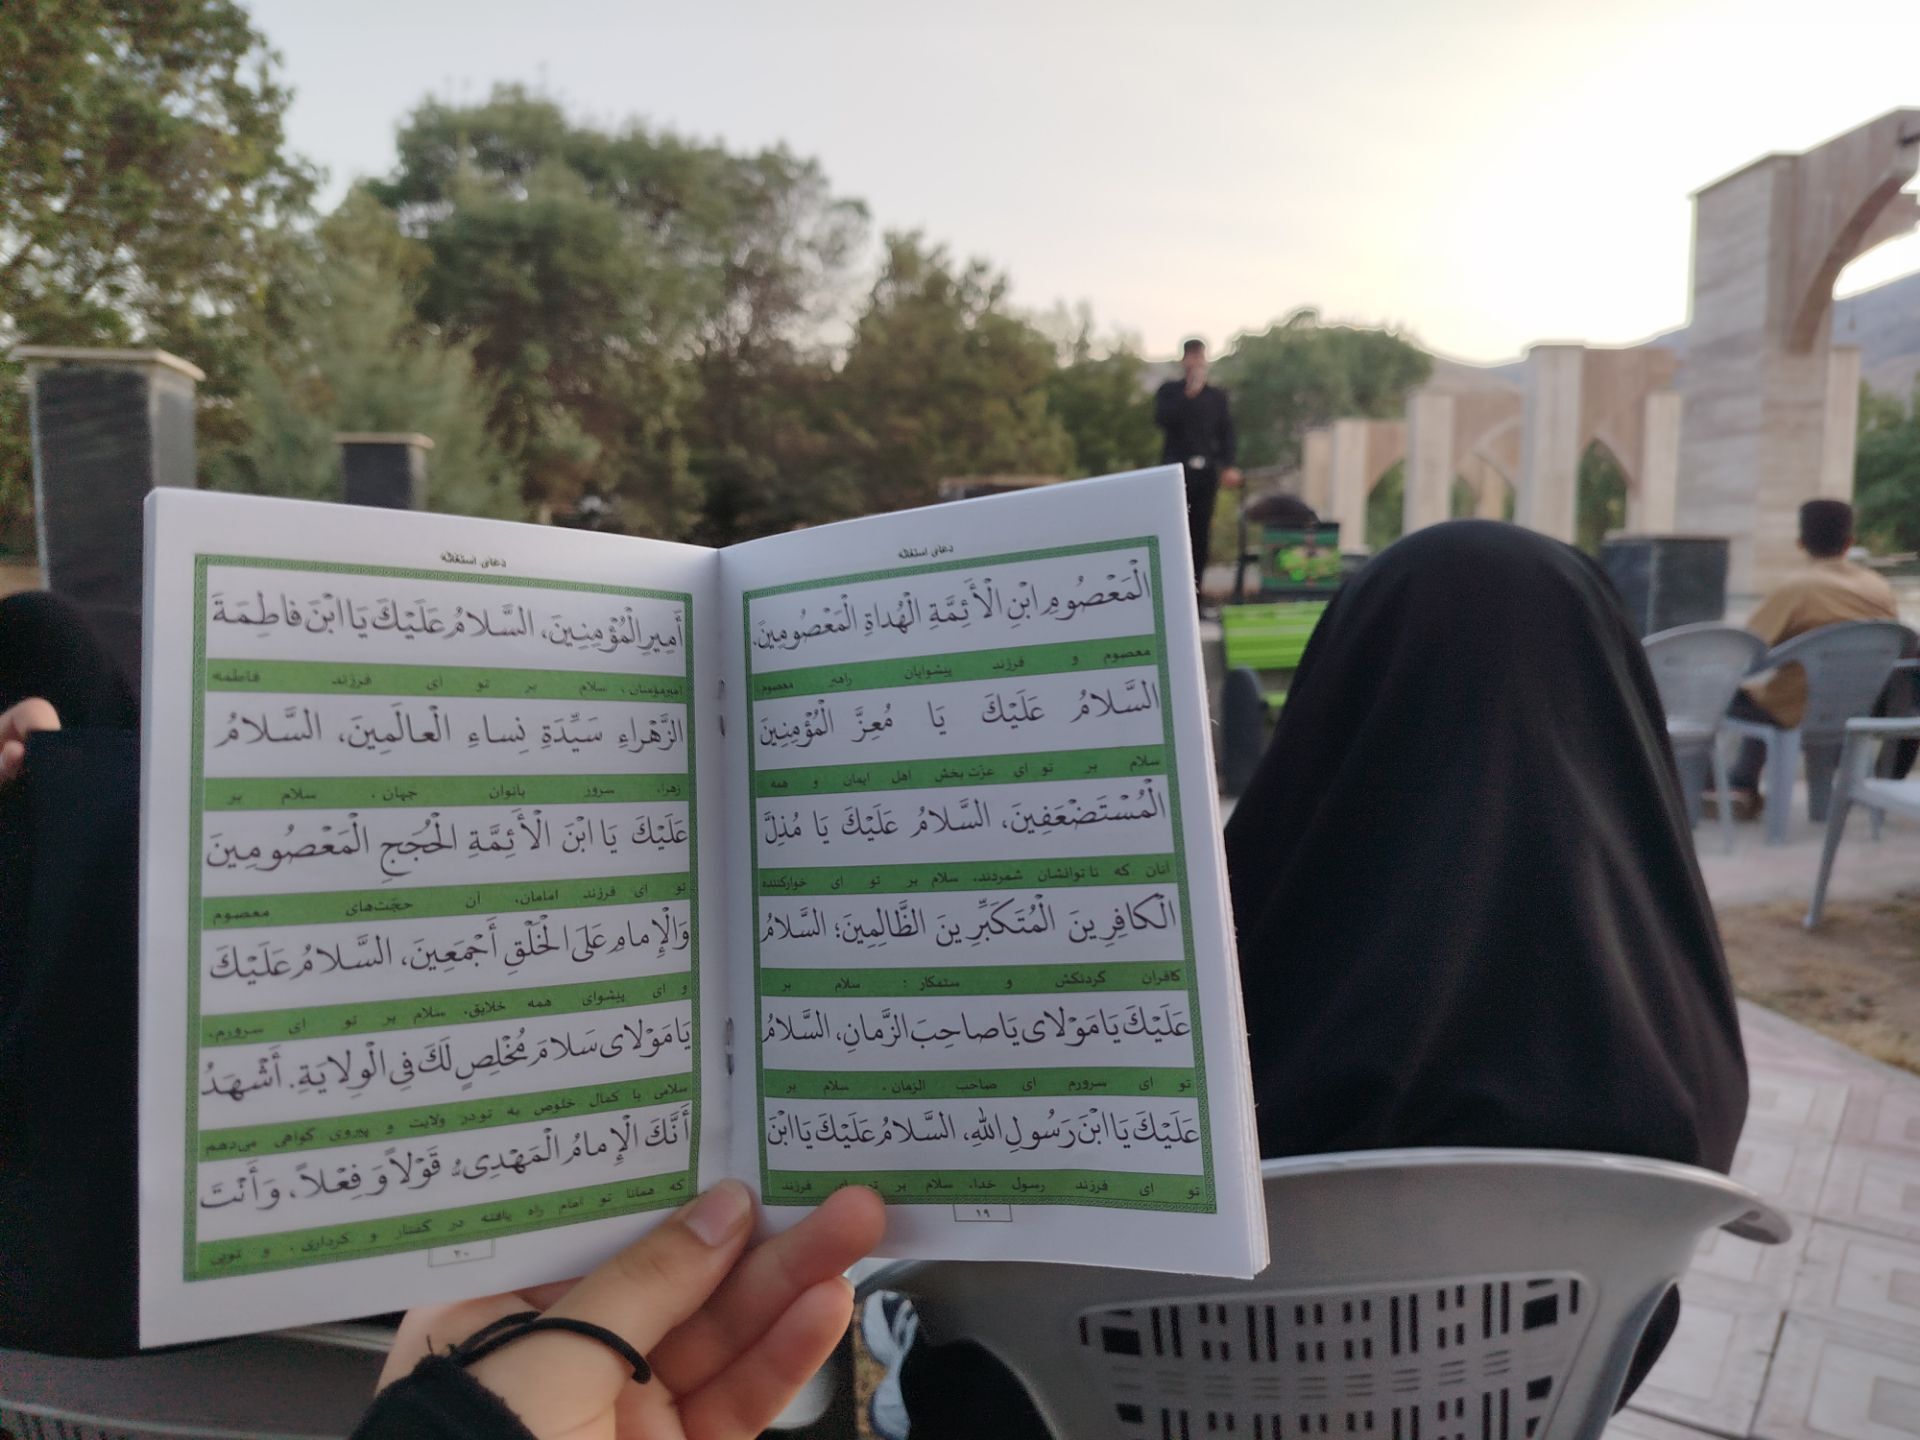 دعای استغاثه
الْمَعْصُومِ ابْنِ الْأَئِمَّةِ الْهُداةِ الْمَعْصُومِينَ.
معصوم و فرزند پیشوایان راهبر معصوم
السَّلامُ عَلَيْكَ يَا مُعِزَّ الْمُؤْمِنِينَ
سلام بر تو ای عزت‌بخش اهل ایمان و همه
الْمُسْتَضْعَفِينَ، السَّلامُ عَلَيْكَ يَا مُذِلَّ
آنان که ناتوانشان شمردند. سلام بر تو ای خوارکننده
الْكافِرِينَ الْمُتَكَبِّرِينَ الظَّالِمِينَ؛ السَّلامُ
کافران گردنکش و ستمکار؛ سلام بر
عَلَيْكَ يَا مَوْلاى يَا صاحِبَ الزَّمانِ، السَّلامُ
تو ای سرورم ای صاحب الزمان. سلام بر
عَلَيْكَ يَا ابْنَ رَسُولِ اللهِ، السَّلامُ عَلَيْكَ يَا ابْنَ
تو ای فرزند رسول خدا. سلام بر تو ای فرزند
۱۹
دعای استغاثه
أَمِيرِ الْمُؤْمِنِينَ، السَّلامُ عَلَيْكَ يَا ابْنَ فاطِمَةَ
امیرمؤمنان، سلام بر تو ای فرزند فاطمه
الزَّهْراءِ سَيِّدَةِ نِساءِ الْعالَمِينَ، السَّلامُ
زهرا، سرور بانوان جهان. سلام بر
عَلَيْكَ يَا ابْنَ الْأَئِمَّةِ الْحُجَجِ الْمَعْصُومِينَ
تو ای فرزند امامان، آن حجّت‌های معصوم
وَالْإِمامِ عَلَى الْخَلْقِ أَجْمَعِينَ، السَّلامُ عَلَيْكَ
و ای پیشوای همه خلایق. سلام بر تو ای سرورم.
يَا مَوْلاى سَلامَ مُخْلِصٍ لَكَ فِي الْوِلايَةِ. أَشْهَدُ
سلامی با کمال خلوص به تو در ولایت و پیروی گواهی می‌دهم
أَنَّكَ الْإِمامُ الْمَهْدِى، قَوْلاً وَ فِعْلاً، وَأَنْتَ
که همانا تو امام راه یافته در گفتار و کرداری، و تویی
۲۰